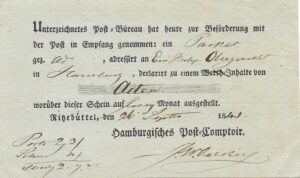 Unterzeichnetes Post-Büreau hat heute zur Beförderung mit
der Post in Empfang genommen: ein Packet
gez. adressirt an Ein Obergericht
in Hamburg, declarirt zu einem Werth-Inhalte von
Acten
worüber dieser Schein auf Monat ausgestellt.
Ritzebüttel, den 26 Septb 1841
Hamburgisches Post-Comptoir.
Porto